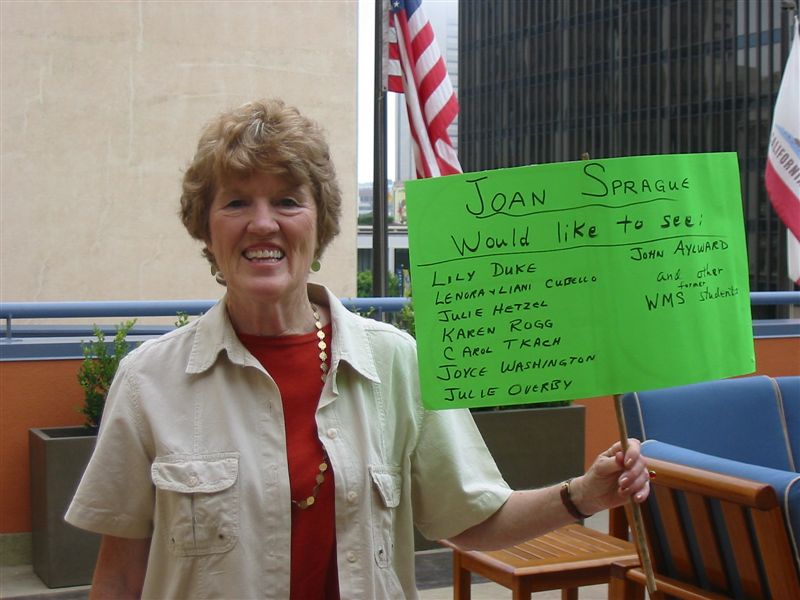 JOAN SPRAGUE
Would like to see:
LILY DUKE
LENORA + LIANI CUBELLO
JULIE HETZEL
KAREN ROGG
CAROL TKACH
JOYCE WASHINGTON
JULIE OVERBY
JOHN AYLWARD
and other
former
WMS students
CALIFORNIA